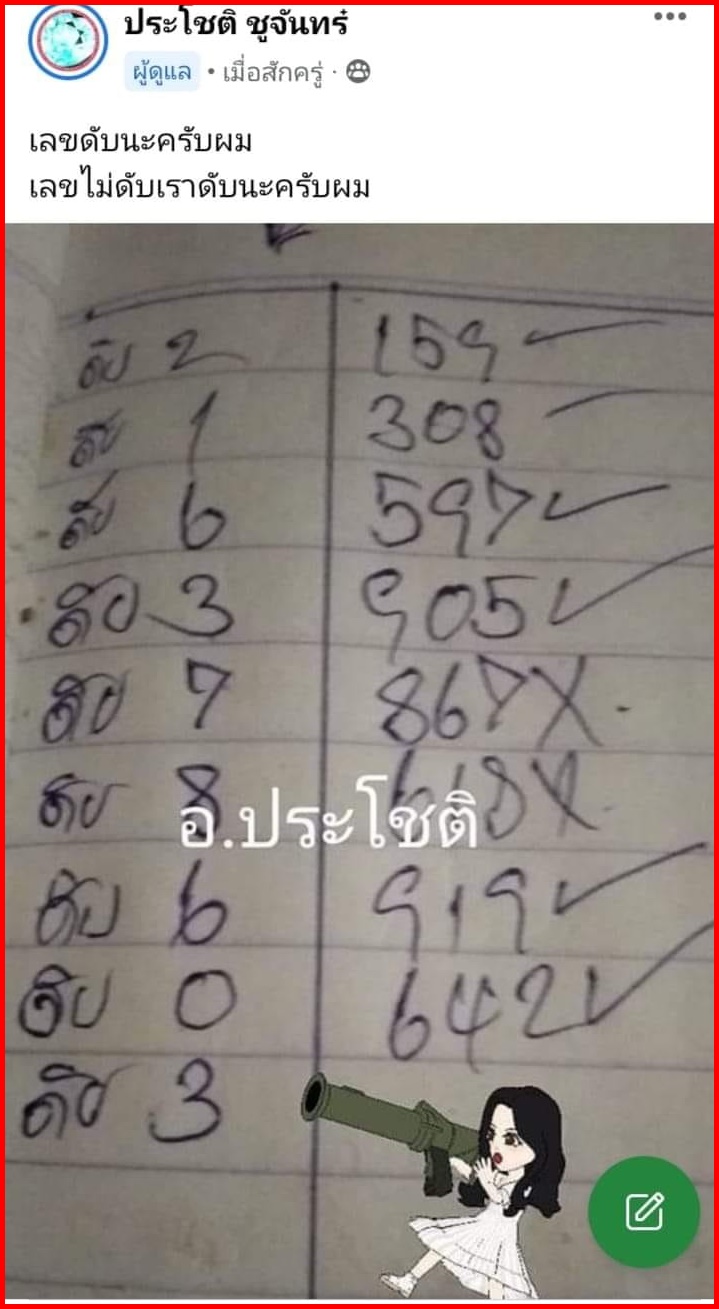 ประโชติ ชูจันทร์
ผู้ดูแล • เมื่อสักครู่ ·
เลขดับนะครับผม
เลขไม่ดับเราดับนะครับผม
ดับ 2 159 ✓
ดับ 1 308
ดับ 6 597 ✓
ดับ 3 905 ✓
ดับ 7 867 X
ดับ 8 618 X
อ.ประโชติ
ดับ 6 919 ✓
ดับ 0 642 ✓
ดับ 3